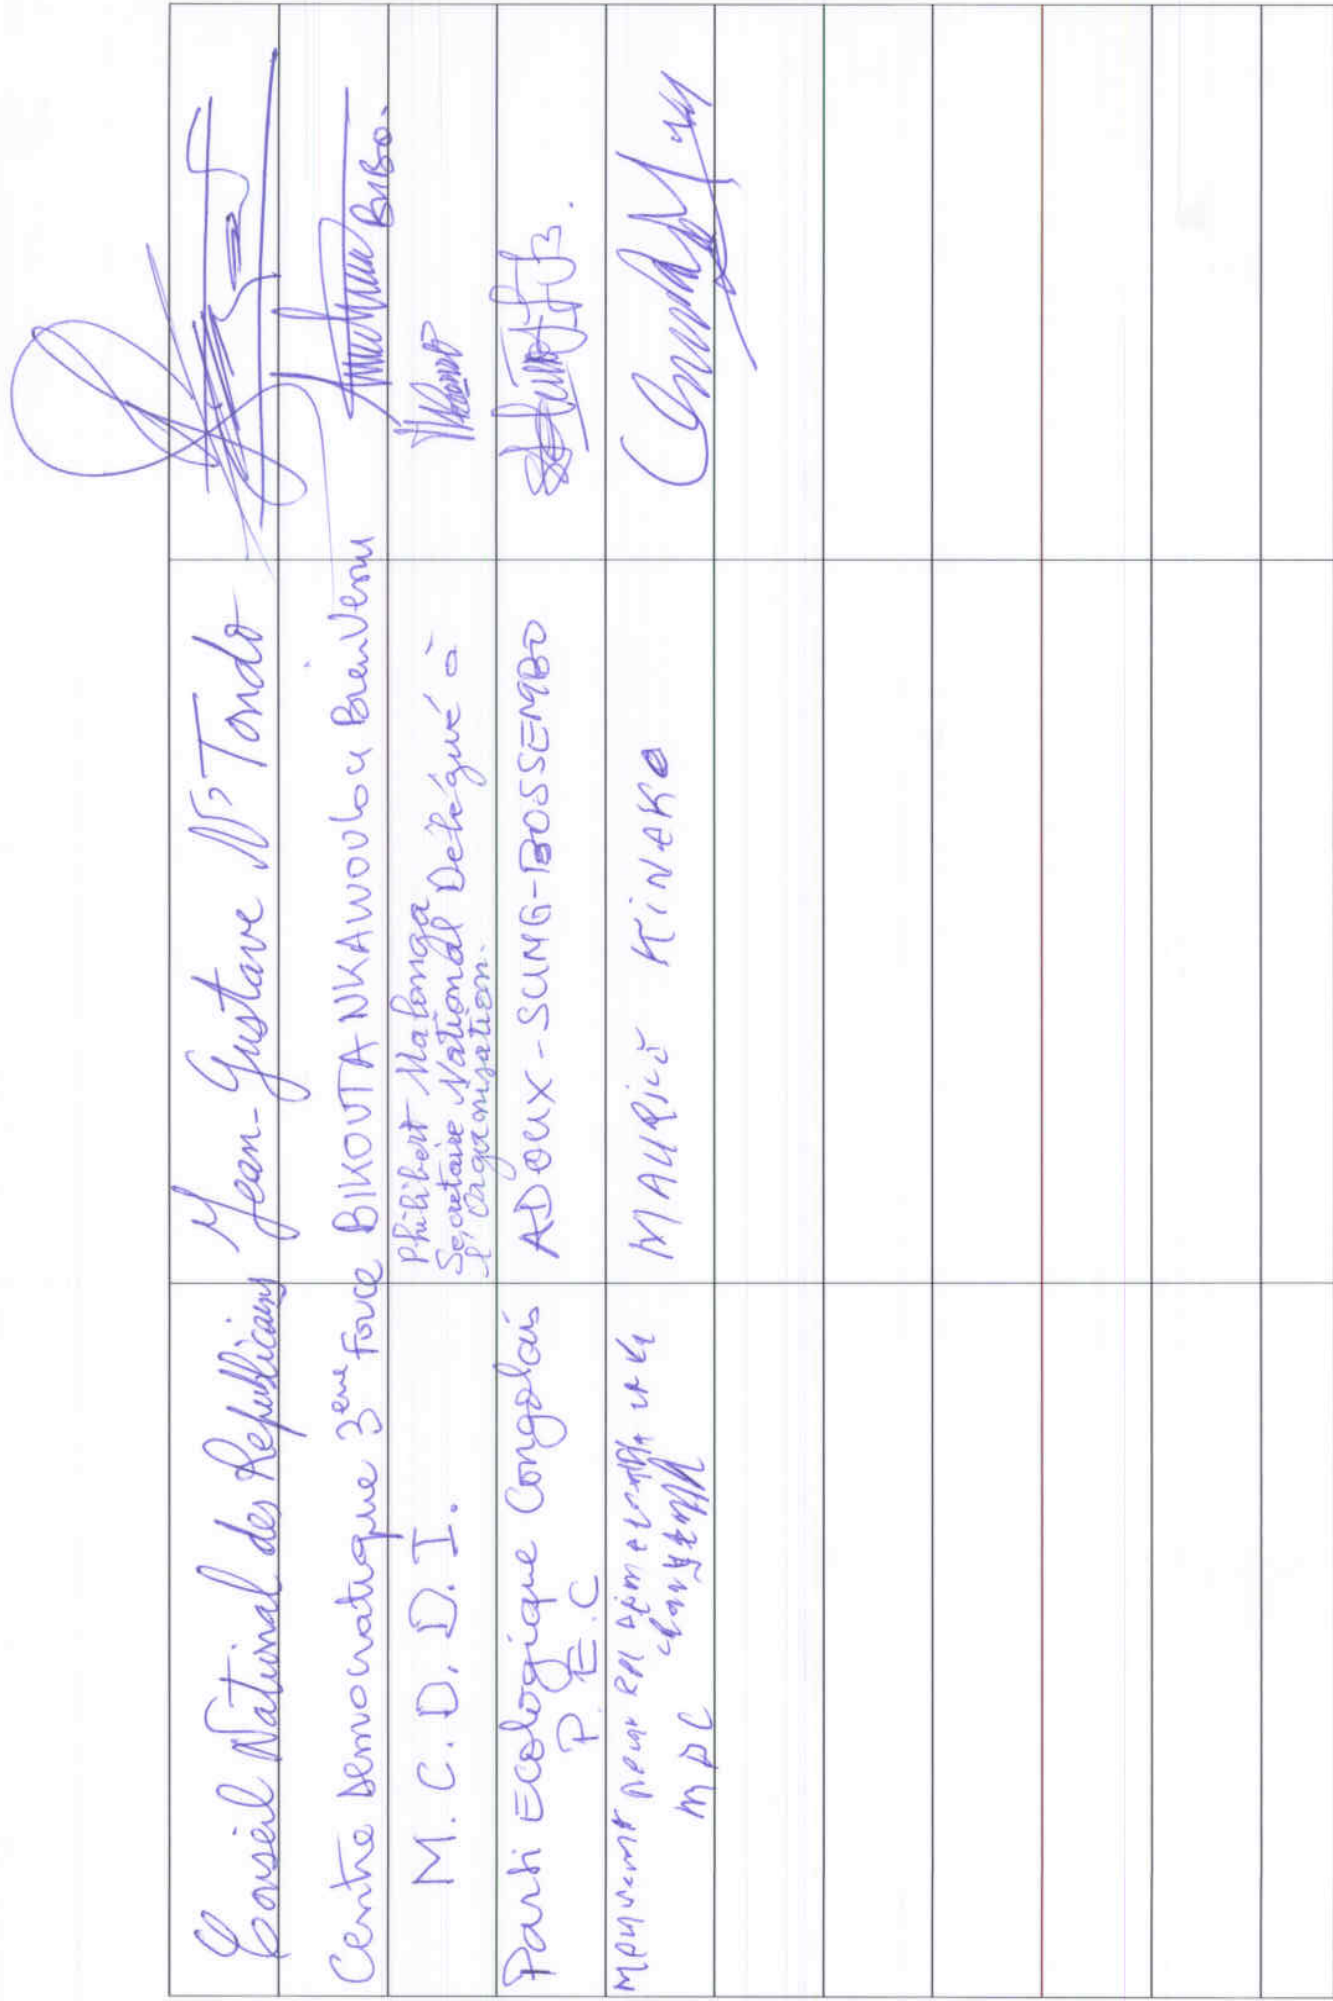 Conseil National des Republicains
Jean-Gustave N'Tondo
Centre Democratique 3eme Force
BIKOUTA NKAWOULOU BienVenu
BIBO.
M. C. D. D. I.
Philibert Malonga
Secretaire National Delegué à
l'Organisation.
Parti Ecologique Congolais
P. E. C
ADOUX-SUNG-BOSSEMBO
Mouvement pour
MDC
MAURICE KINOKO